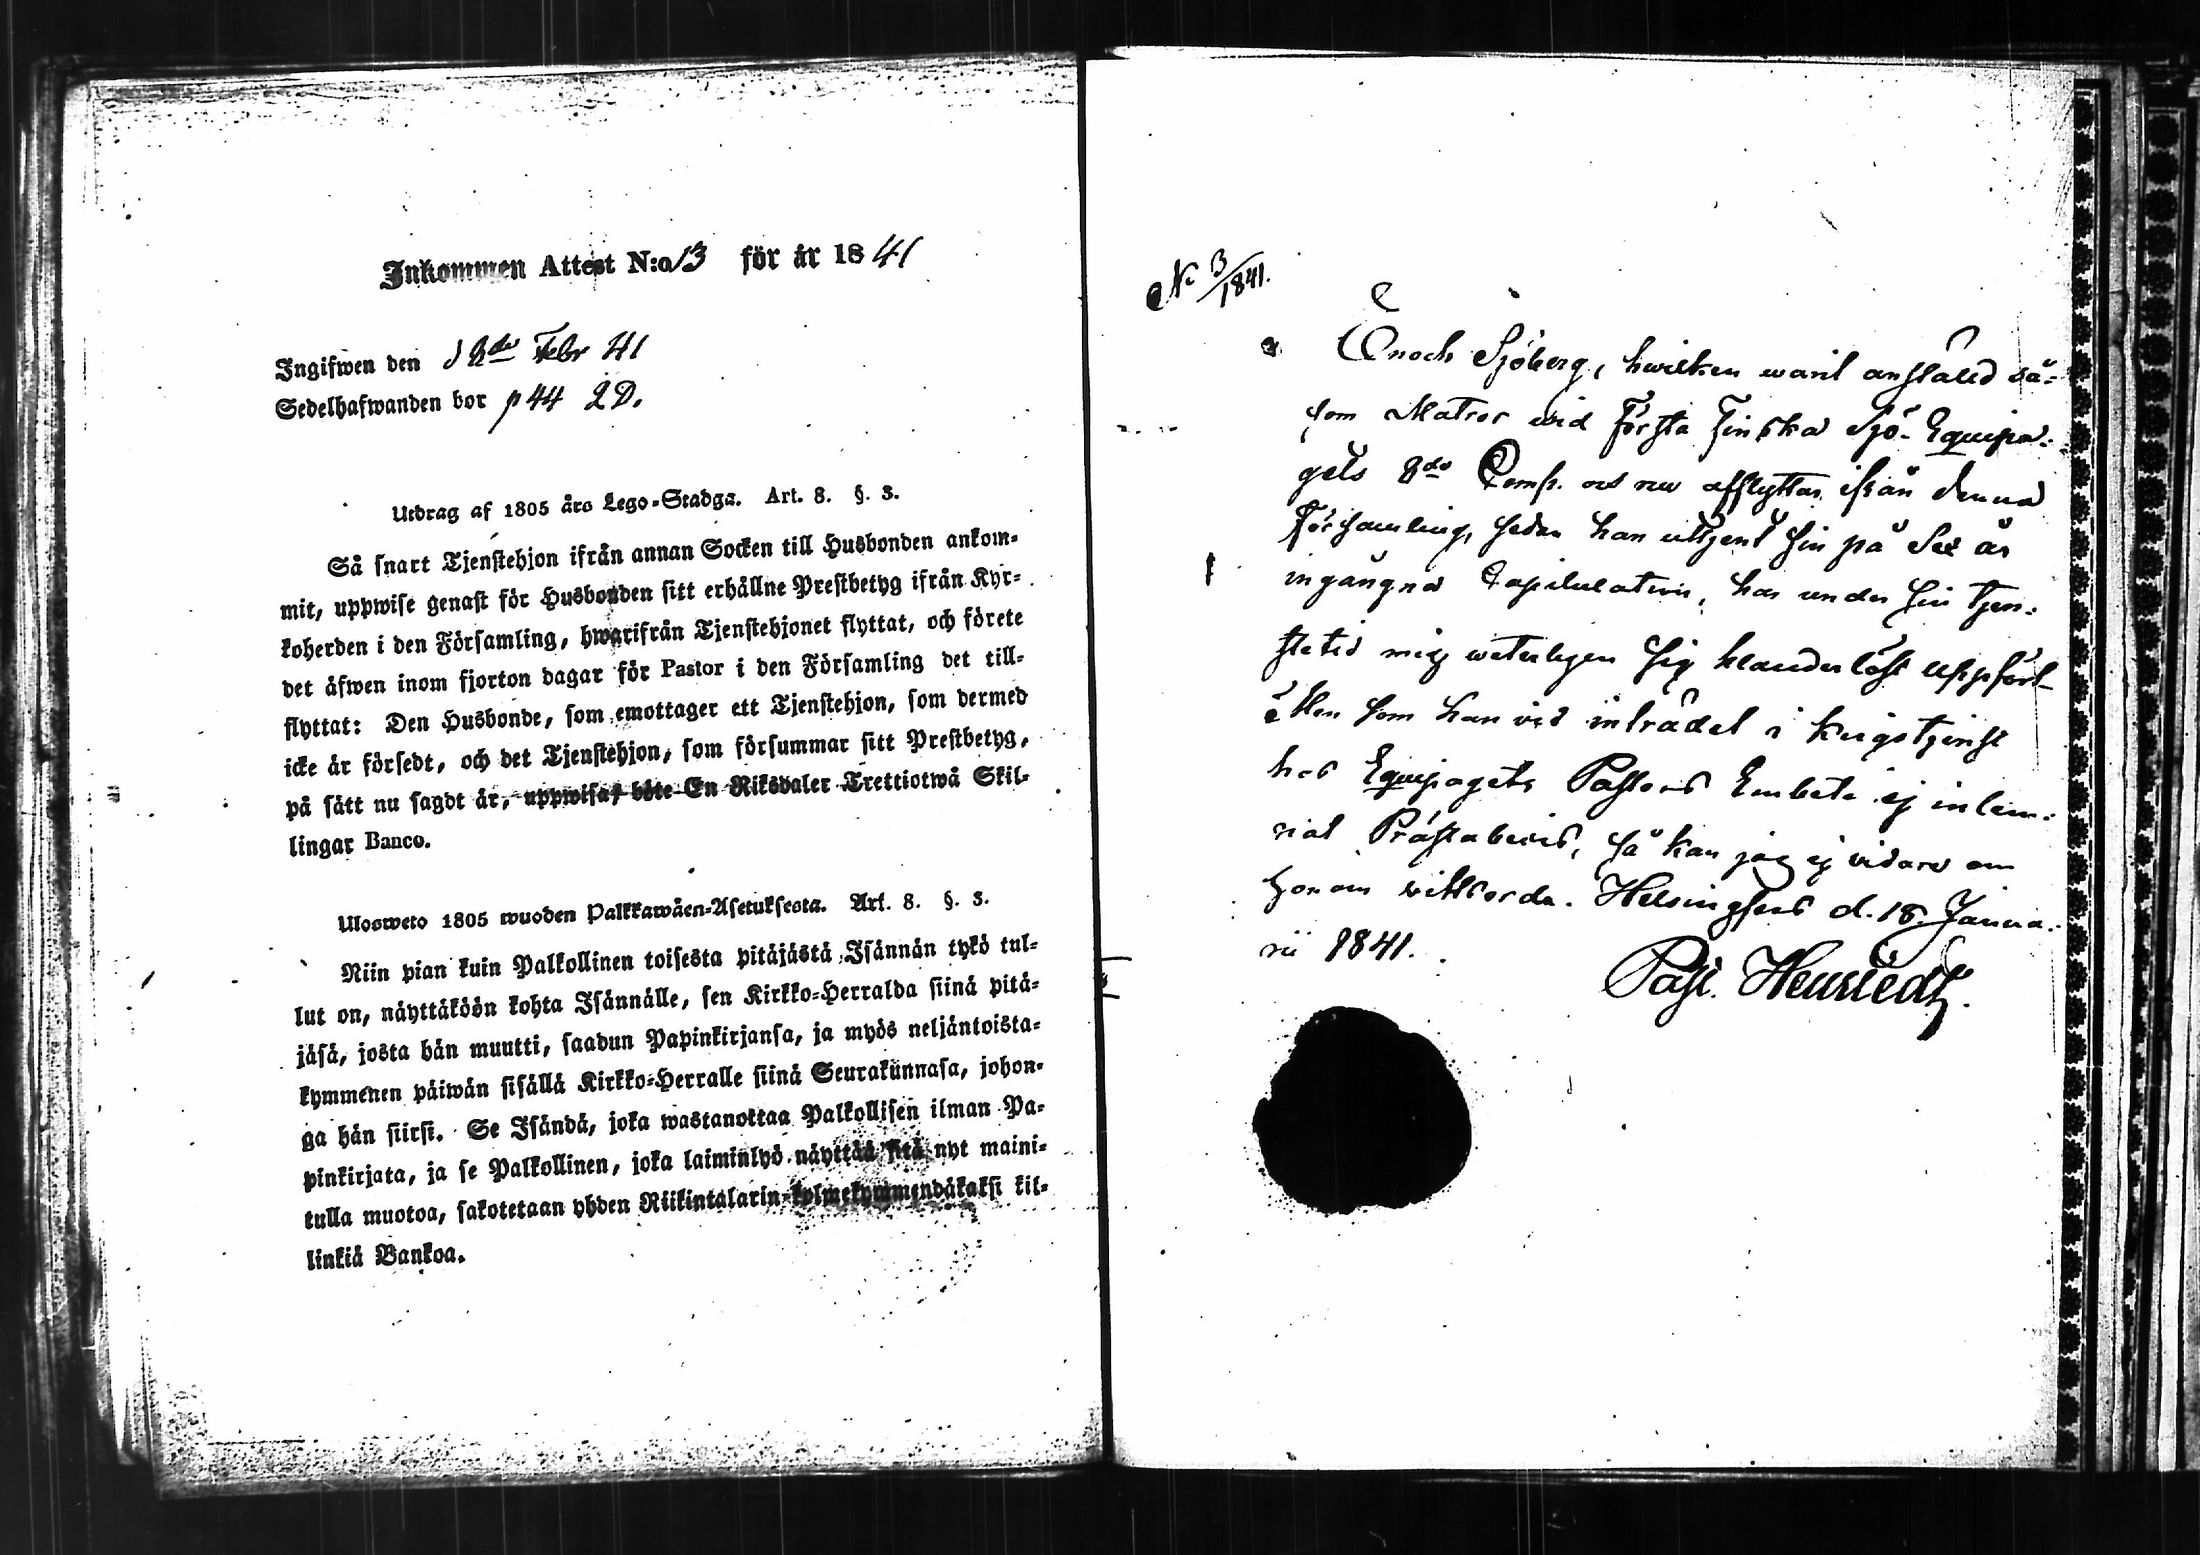 Inkommen Attest N:o 13 för år 1841
Ingifwen den d 2de Febr 41
Sedelhafwanden bor p 44 2D.
Utdrag af 1805 års Lego-Stadga. Art. 8. §. 3.
Så snart Tjenstehjon ifrån annan Socken till Husbonden ankom-
mit, uppwise genast för Husbonden sitt erhållne Prestbetyg ifrån Kyr-
koherden i den Församling, hwarifrån Tjenstehjonet flyttat, och förete
det äfwen inom fjorton dagar för Pastor i den Församling det till-
flyttat: Den Husbonde, som emottager ett Tjenstehjon, som dermed
icke är försedt, och det Tjenstehjon, som försummar sitt Prestbetyg,
på sätt nu sagdt är, uppwisa, böte En Riksdaler Trettiotwå Skil-
lingar Banco.
Ulosweto 1805 wuoden Palkkawäen-Asetuksesta. Art. 8. §. 3.
Niin pian kuin Palkollinen toisesta pitäjästä Isännän tykö tul-
lut on, näyttäköön kohta Isännälle, sen Kirkko-Herralda siinä pitä-
jäsä, josta hän muutti, saadun Papinkirjansa, ja myös neljäntoista-
kymmenen päiwän sisällä Kirkko-Herralle siinä Seurakunnasa, johon-
ga hän siirsi. Se Isändä, joka wastanottaa Palkollisen ilman Pa-
pinkirjata, ja se Palkollinen, joka laiminlyö näyttää sitä nyt maini-
tulla muotoa, sakotetaan yhden Riikintalarin kolmekymmendäkaksi kil-
linkiä Bankoa.
No 3/1841.
Enoch Sjöberg, hwilken warit anstäld så-
som Matros wid Första Finska Sjö-Equipa-
gets 8de Comp. och nu afflyttar ifrån denna
Församling, sedan han uttjent sin på Sex år
ingångna Capitulation, har under sin tjen-
stetid mig weterligen sig klanderlöst uppfört
Men som han vid inträdet i krigstjenst
hos Equipagets Pastors Embete ej inlem-
nat Prästabevis, så kan jag ej vidare om
honom vittsorda. Helsingfors d. 18 Janua-
rii 1841.
Past.